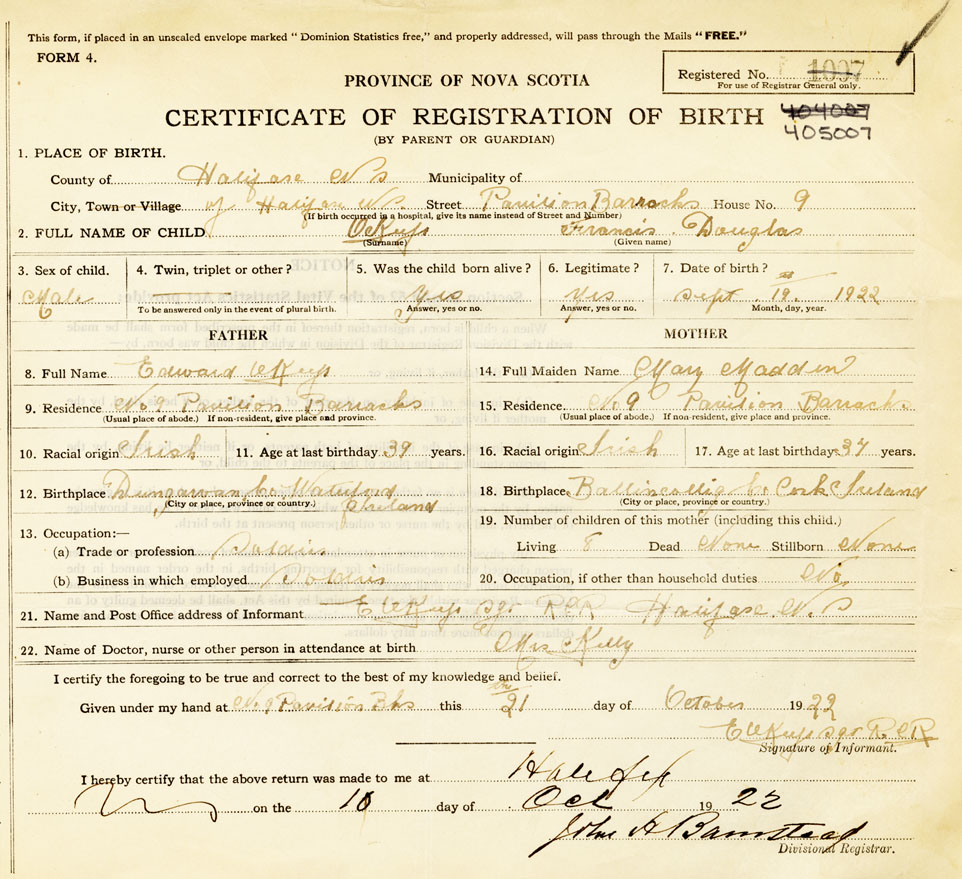 This form, if placed in an unsealed envelope marked "Dominion Statistics free," and properly addressed, will pass through the Mails "FREE."
FORM 4.
Registered No. 1007
For use of Registrar General only.
PROVINCE OF NOVA SCOTIA
CERTIFICATE OF REGISTRATION OF BIRTH 404007
405007
(BY PARENT OR GUARDIAN)
1. PLACE OF BIRTH.
County of Halifax N S Municipality of
City, Town or Village of Halifax N.S. Street Pavilion Barracks House No. 9
(If birth occurred in a hospital, give its name instead of Street and Number)
2. FULL NAME OF CHILD Francis Douglas
(Surname) (Given name)
3. Sex of child. 4. Twin, triplet or other? 5. Was the child born alive? 6. Legitimate? 7. Date of birth?
Male Yes Yes Sept. 19 1922
To be answered only in the event of plural birth. Answer, yes or no. Answer, yes or no. Month, day, year.
FATHER MOTHER
8. Full Name Edward 14. Full Maiden Name Mary Madden
9. Residence No 9 Pavilion Barracks 15. Residence. No 9 Pavilion Barracks
(Usual place of abode.) If non-resident, give place and province. (Usual place of abode.) If non-resident, give place and province.
10. Racial origin Irish 11. Age at last birthday 39 years. 16. Racial origin Irish 17. Age at last birthday 37 years.
12. Birthplace Dungarvan Co. Waterford Ireland 18. Birthplace Ballincollig Co Cork Ireland
(City or place, province or country.) (City or place, province or country.)
19. Number of children of this mother (including this child.)
13. Occupation:—
(a) Trade or profession Soldier Living 8 Dead None Stillborn None
(b) Business in which employed Soldier 20. Occupation, if other than household duties No
21. Name and Post Office address of Informant RCR Halifax N.S
22. Name of Doctor, nurse or other person in attendance at birth Mrs Kelly
I certify the foregoing to be true and correct to the best of my knowledge and belief.
Given under my hand at No 9 Pavilion Bks this 21 day of October 1922
R.C.R
Signature of Informant.
I hereby certify that the above return was made to me at Halifax
on the day of Oct 1922
John A Barnstead
Divisional Registrar.